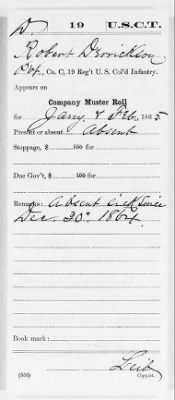 D. 19 U.S.C.T.
Robert Derrickson
Pvt., Co. C, 19 Reg't U. S. Col'd Infantry.
Appears on
Company Muster Roll
for Jany & Feb., 1865
Present or absent Absent
Stoppage, $ 100 for
Due Gov't, $ 100 for
Remarks: Absent sick since
Dec. 30" 1864.
Book mark:
(356)
Copyist.